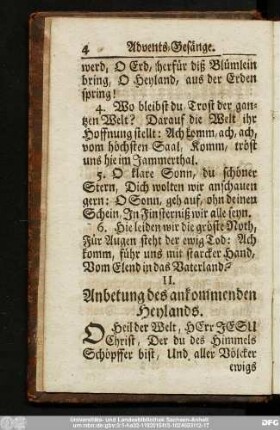 4 Advents-Gesänge.
werd, O Erd, herfür diß Blümlein
bring, O Heyland, aus der Erden
spring!
4. Wo bleibst du, Trost der gan-
tzen Welt? Darauf die Welt ihr
Hoffnung stellt: Ach komm, ach, ach,
vom höchsten Saal, Komm, tröst
uns hie im Jammerthal.
5. O klare Sonn, du schöner
Stern, Dich wolten wir anschauen
gern: O Sonn, geh auf, ohn deinen
Schein, In Finsterniß wir alle seyn.
6. Hie leiden wir die gröste Noth,
Für Augen steht der ewig Tod: Ach
komm, führ uns mit starcker Hand,
Vom Elend in das Vaterland.
II.
Anbetung des ankommenden
Heylands.
O Heil der Welt, HErr JESU
Christ, Der du des Himmels
Schöpffer bist, Und aller Völcker
ewigs
Universitäts- und Landesbibliothek Sachsen-Anhalt